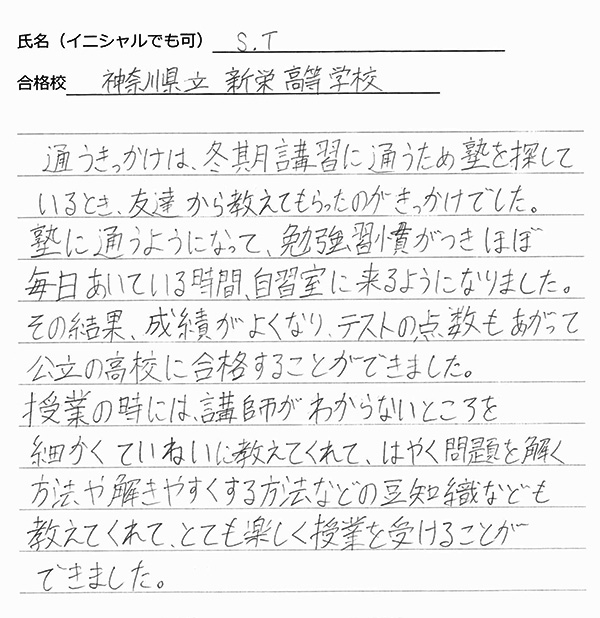 氏名（イニシャルでも可） S.T
合格校 神奈川県立 新栄高等学校
通うきっかけは、冬期講習に通うため塾を探して
いるとき、友達から教えてもらったのがきっかけでした。
塾に通うようになって、勉強習慣がつきほぼ
毎日あいている時間、自習室に来るようになりました。
その結果、成績がよくなり、テストの点数もあがって
公立の高校に合格することができました。
授業の時には、講師がわからないところを
細かくていねいに教えてくれて、はやく問題を解く
方法や解きやすくする方法などの豆知織なども
教えてくれて、とても楽しく授業を受けることが
できました。